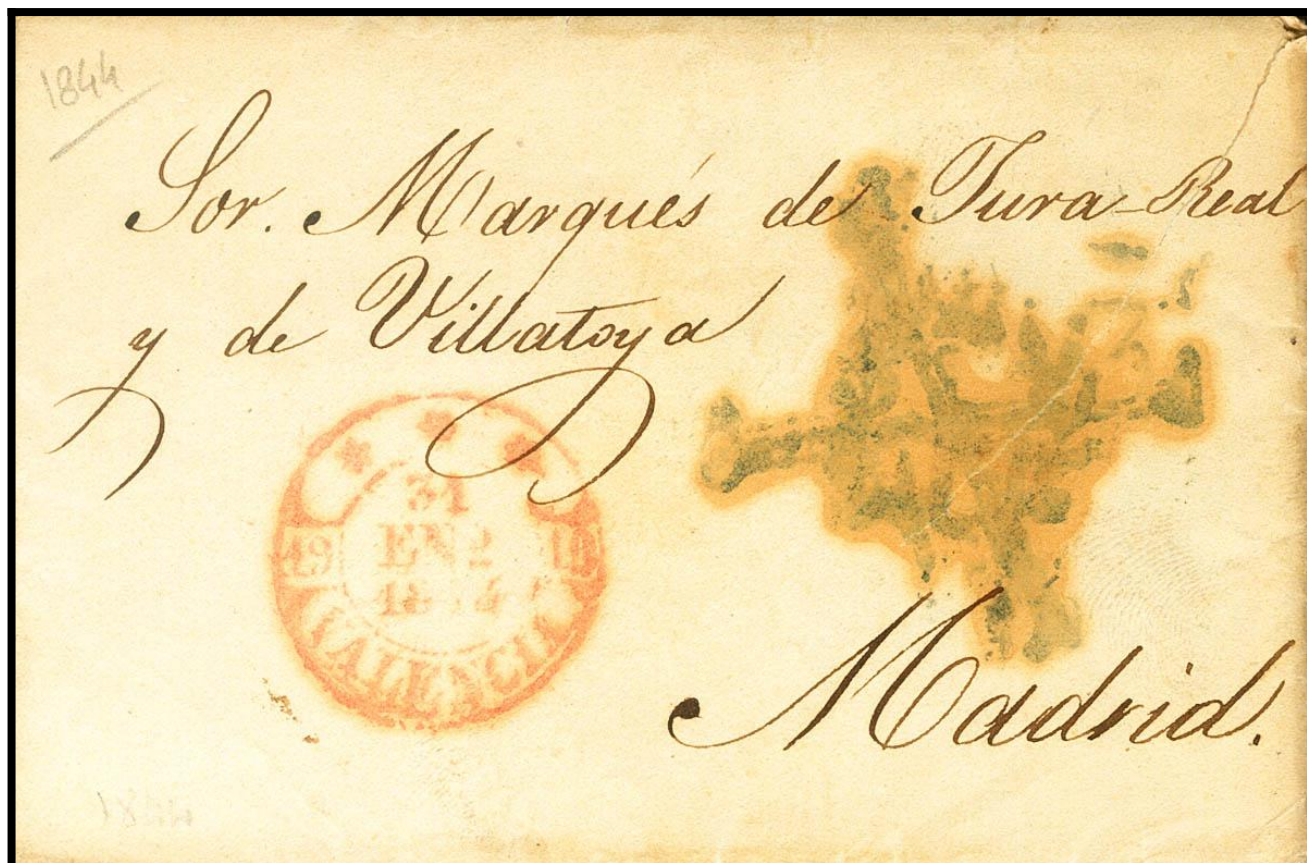 1844
Sor. Marqués de Jura-Real
y de Villatoya
31
ENE
19
VALENCIA
Madrid.
1844